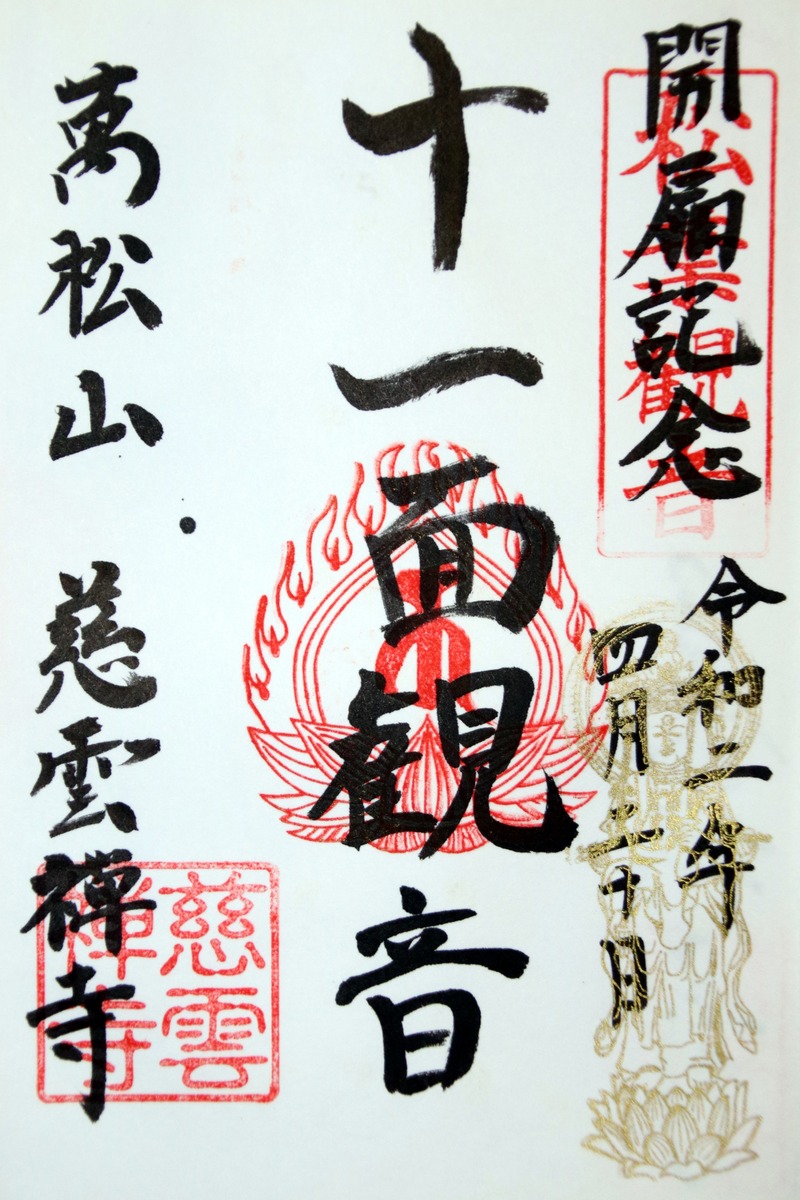 開扉記念
令和二年
四月十日
十一面観音
萬松山 慈雲禪寺
慈雲
禪寺